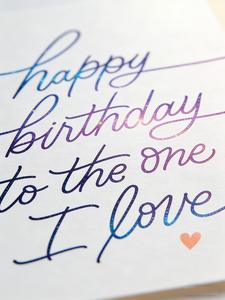 happy
birthday
to the one
I love